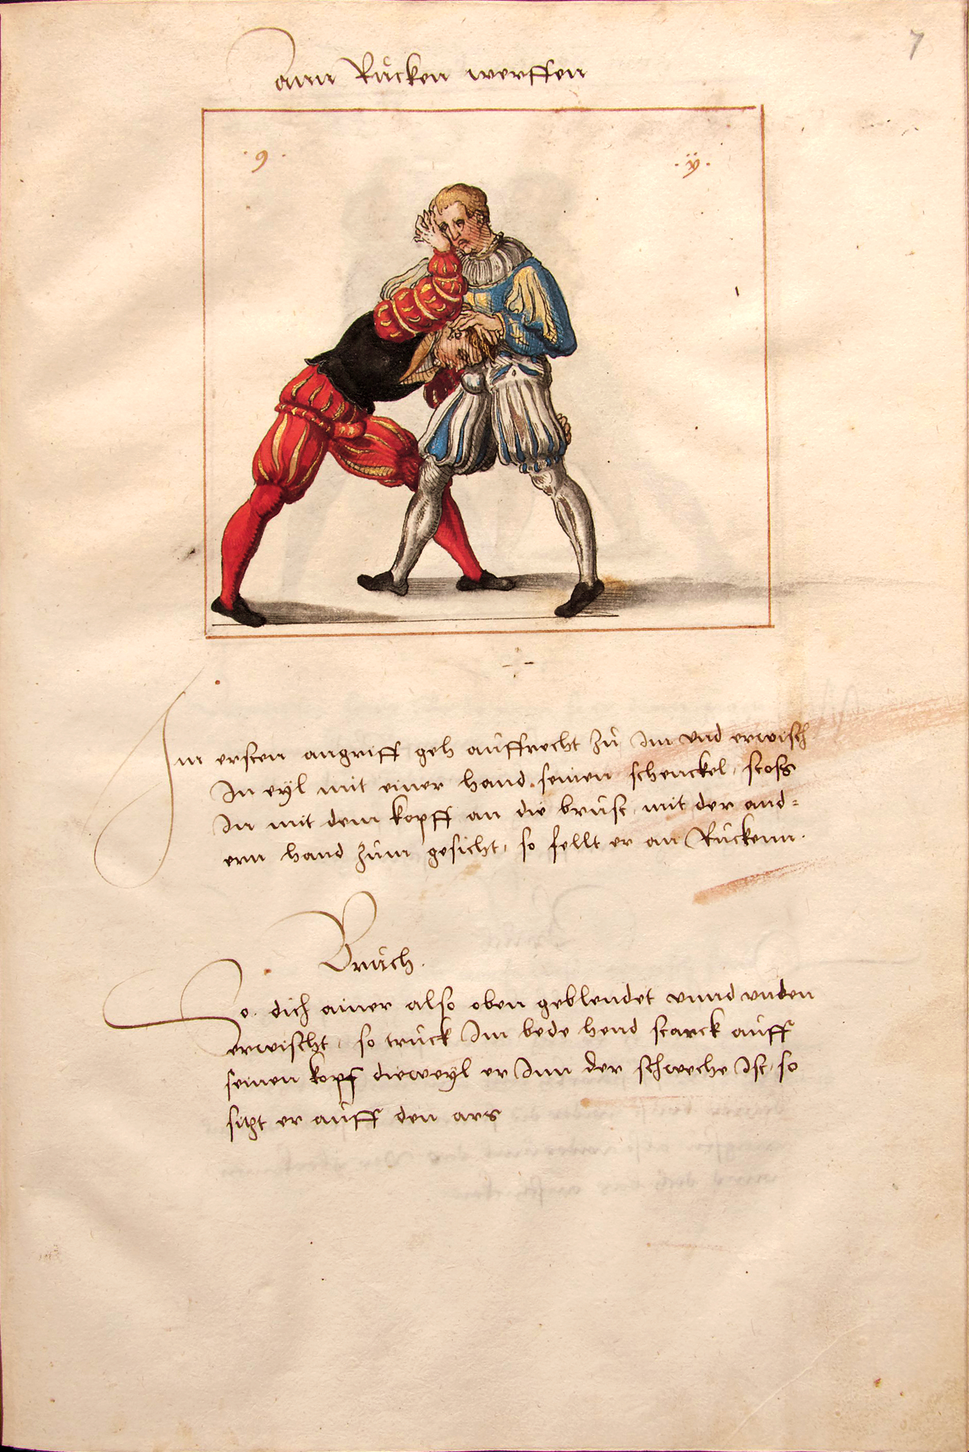 7
ann Rücken werffen
.9.
.ÿ.
Im ersten angriff geh auffrecht zů Im vnd erwisch
In eyl mit einer hand seinen schenckel, stoss
In mit dem kopff an die brust, mit der and=
ern hand zům gesicht, so fellt er an Rückenn.
Bruch.
So dich ainer also oben geblendet vnnd vnden
erwischt, so truck Im bede hend starck auff
seinen kopff dieweyl er Inn der schweche Ist, so
sitzt er auff den ars